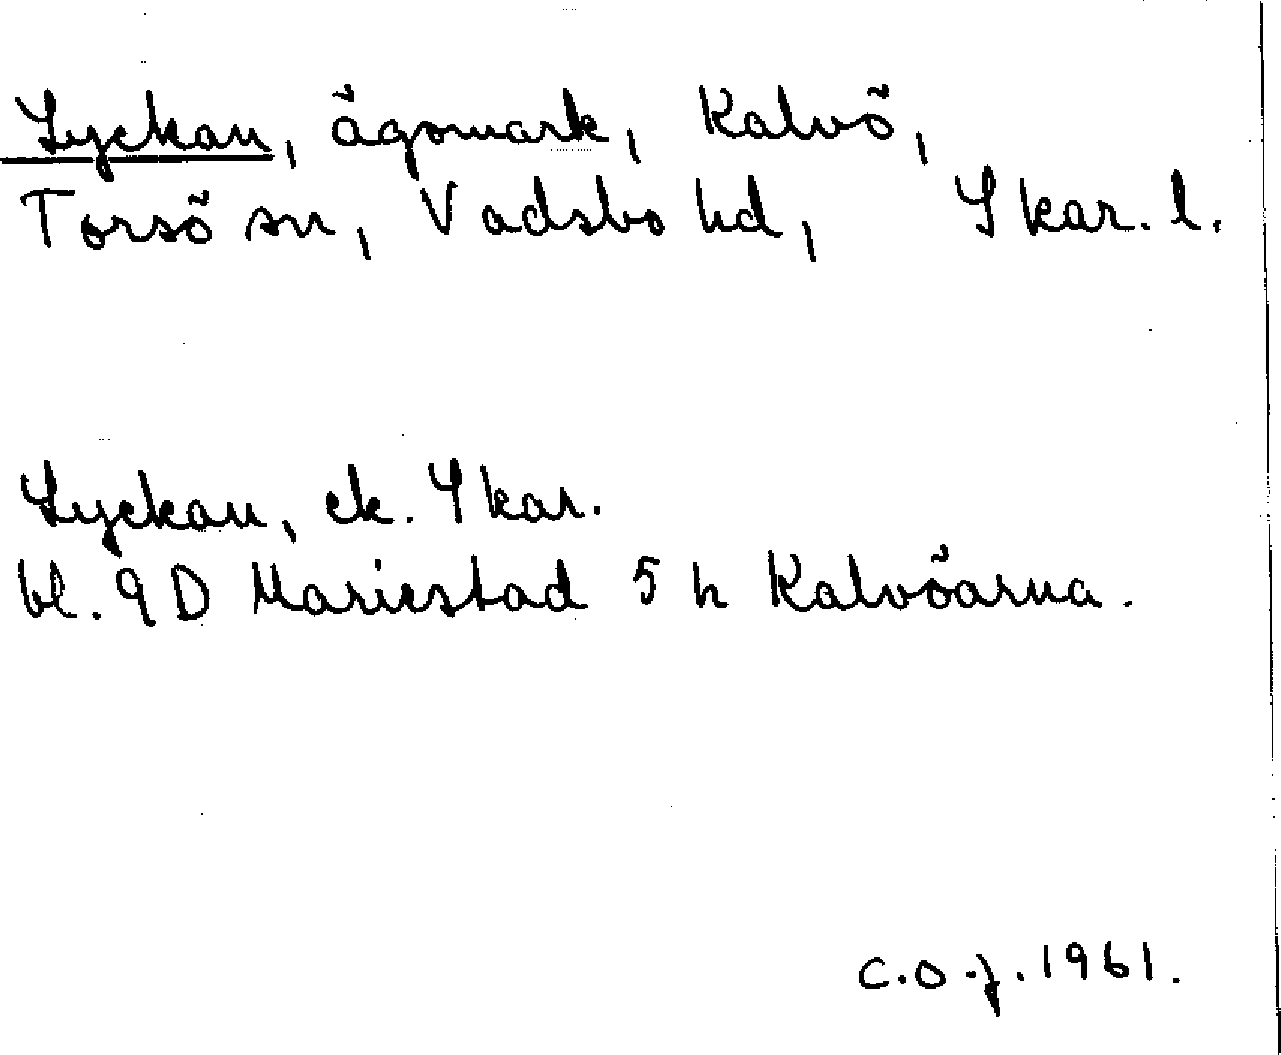 Lyckan, ägomark, Kalvö,
Torsö sn, Vadsbo hd, Skar. l.
Lyckan, ek. Skar.
bl. 9 D Mariestad 5 h Kalvöarna.
C.O.J. 1961.